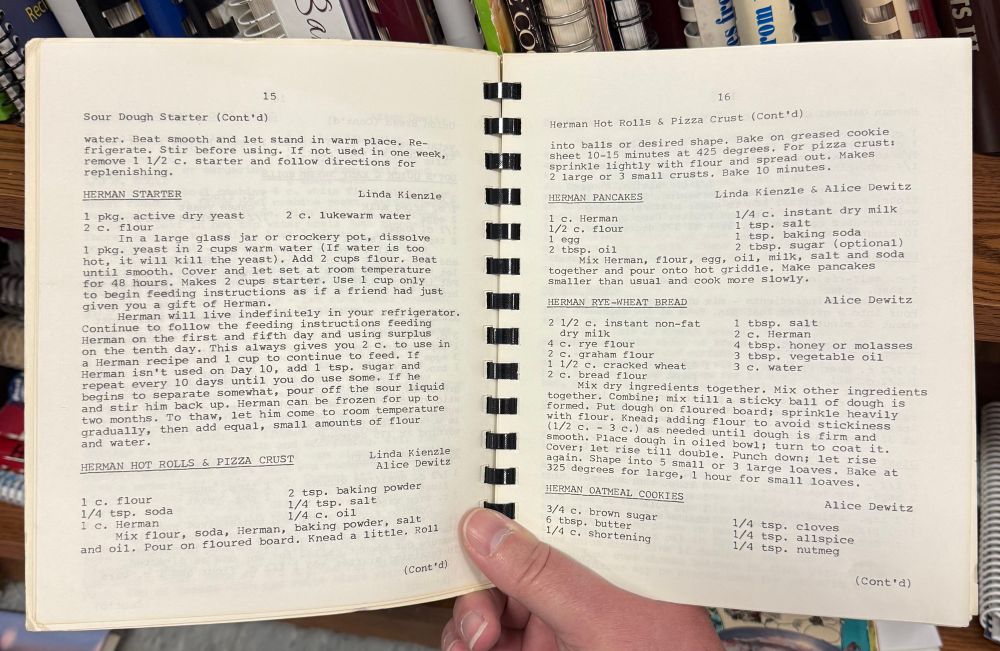 15
Sour Dough Starter (Cont'd)
water. Beat smooth and let stand in warm place. Re-
frigerate. Stir before using. If not used in one week,
remove 1 1/2 c. starter and follow directions for
replenishing.
HERMAN STARTER Linda Kienzle
1 pkg. active dry yeast 2 c. lukewarm water
2 c. flour
In a large glass jar or crockery pot, dissolve
1 pkg. yeast in 2 cups warm water (If water is too
hot, it will kill the yeast). Add 2 cups flour. Beat
until smooth. Cover and let set at room temperature
for 48 hours. Makes 2 cups starter. Use 1 cup only
to begin feeding instructions as if a friend had just
given you a gift of Herman.
Herman will live indefinitely in your refrigerator.
Continue to follow the feeding instructions feeding
Herman on the first and fifth day and using surplus
on the tenth day. This always gives you 2 c. to use in
a Herman recipe and 1 cup to continue to feed. If
Herman isn't used on Day 10, add 1 tsp. sugar and
repeat every 10 days until you do use some. If he
begins to separate somewhat, pour off the sour liquid
and stir him back up. Herman can be frozen for up to
two months. To thaw, let him come to room temperature
gradually, then add equal, small amounts of flour
and water.
HERMAN HOT ROLLS & PIZZA CRUST Linda Kienzle
Alice Dewitz
1 c. flour 2 tsp. baking powder
1/4 tsp. soda 1/4 tsp. salt
1 c. Herman 1/4 c. oil
Mix flour, soda, Herman, baking powder, salt
and oil. Pour on floured board. Knead a little. Roll
(Cont'd)
16
Herman Hot Rolls & Pizza Crust (Cont'd)
into balls or desired shape. Bake on greased cookie
sheet 10-15 minutes at 425 degrees. For pizza crust:
sprinkle lightly with flour and spread out. Makes
2 large or 3 small crusts. Bake 10 minutes.
HERMAN PANCAKES Linda Kienzle & Alice Dewitz
1 c. Herman 1/4 c. instant dry milk
1/2 c. flour 1 tsp. salt
1 egg 1 tsp. baking soda
2 tbsp. oil 2 tbsp. sugar (optional)
Mix Herman, flour, egg, oil, milk, salt and soda
together and pour onto hot griddle. Make pancakes
smaller than usual and cook more slowly.
HERMAN RYE-WHEAT BREAD Alice Dewitz
2 1/2 c. instant non-fat 1 tbsp. salt
dry milk 2 c. Herman
4 c. rye flour 4 tbsp. honey or molasses
2 c. graham flour 3 tbsp. vegetable oil
1 1/2 c. cracked wheat 3 c. water
2 c. bread flour
Mix dry ingredients together. Mix other ingredients
together. Combine; mix till a sticky ball of dough is
formed. Put dough on floured board; sprinkle heavily
with flour. Knead; adding flour to avoid stickiness
(1/2 c. - 3 c.) as needed until dough is firm and
smooth. Place dough in oiled bowl; turn to coat it.
Cover; let rise till double. Punch down; let rise
again. Shape into 5 small or 3 large loaves. Bake at
325 degrees for large, 1 hour for small loaves.
HERMAN OATMEAL COOKIES Alice Dewitz
3/4 c. brown sugar 1/4 tsp. cloves
6 tbsp. butter 1/4 tsp. allspice
1/4 c. shortening 1/4 tsp. nutmeg
(Cont'd)